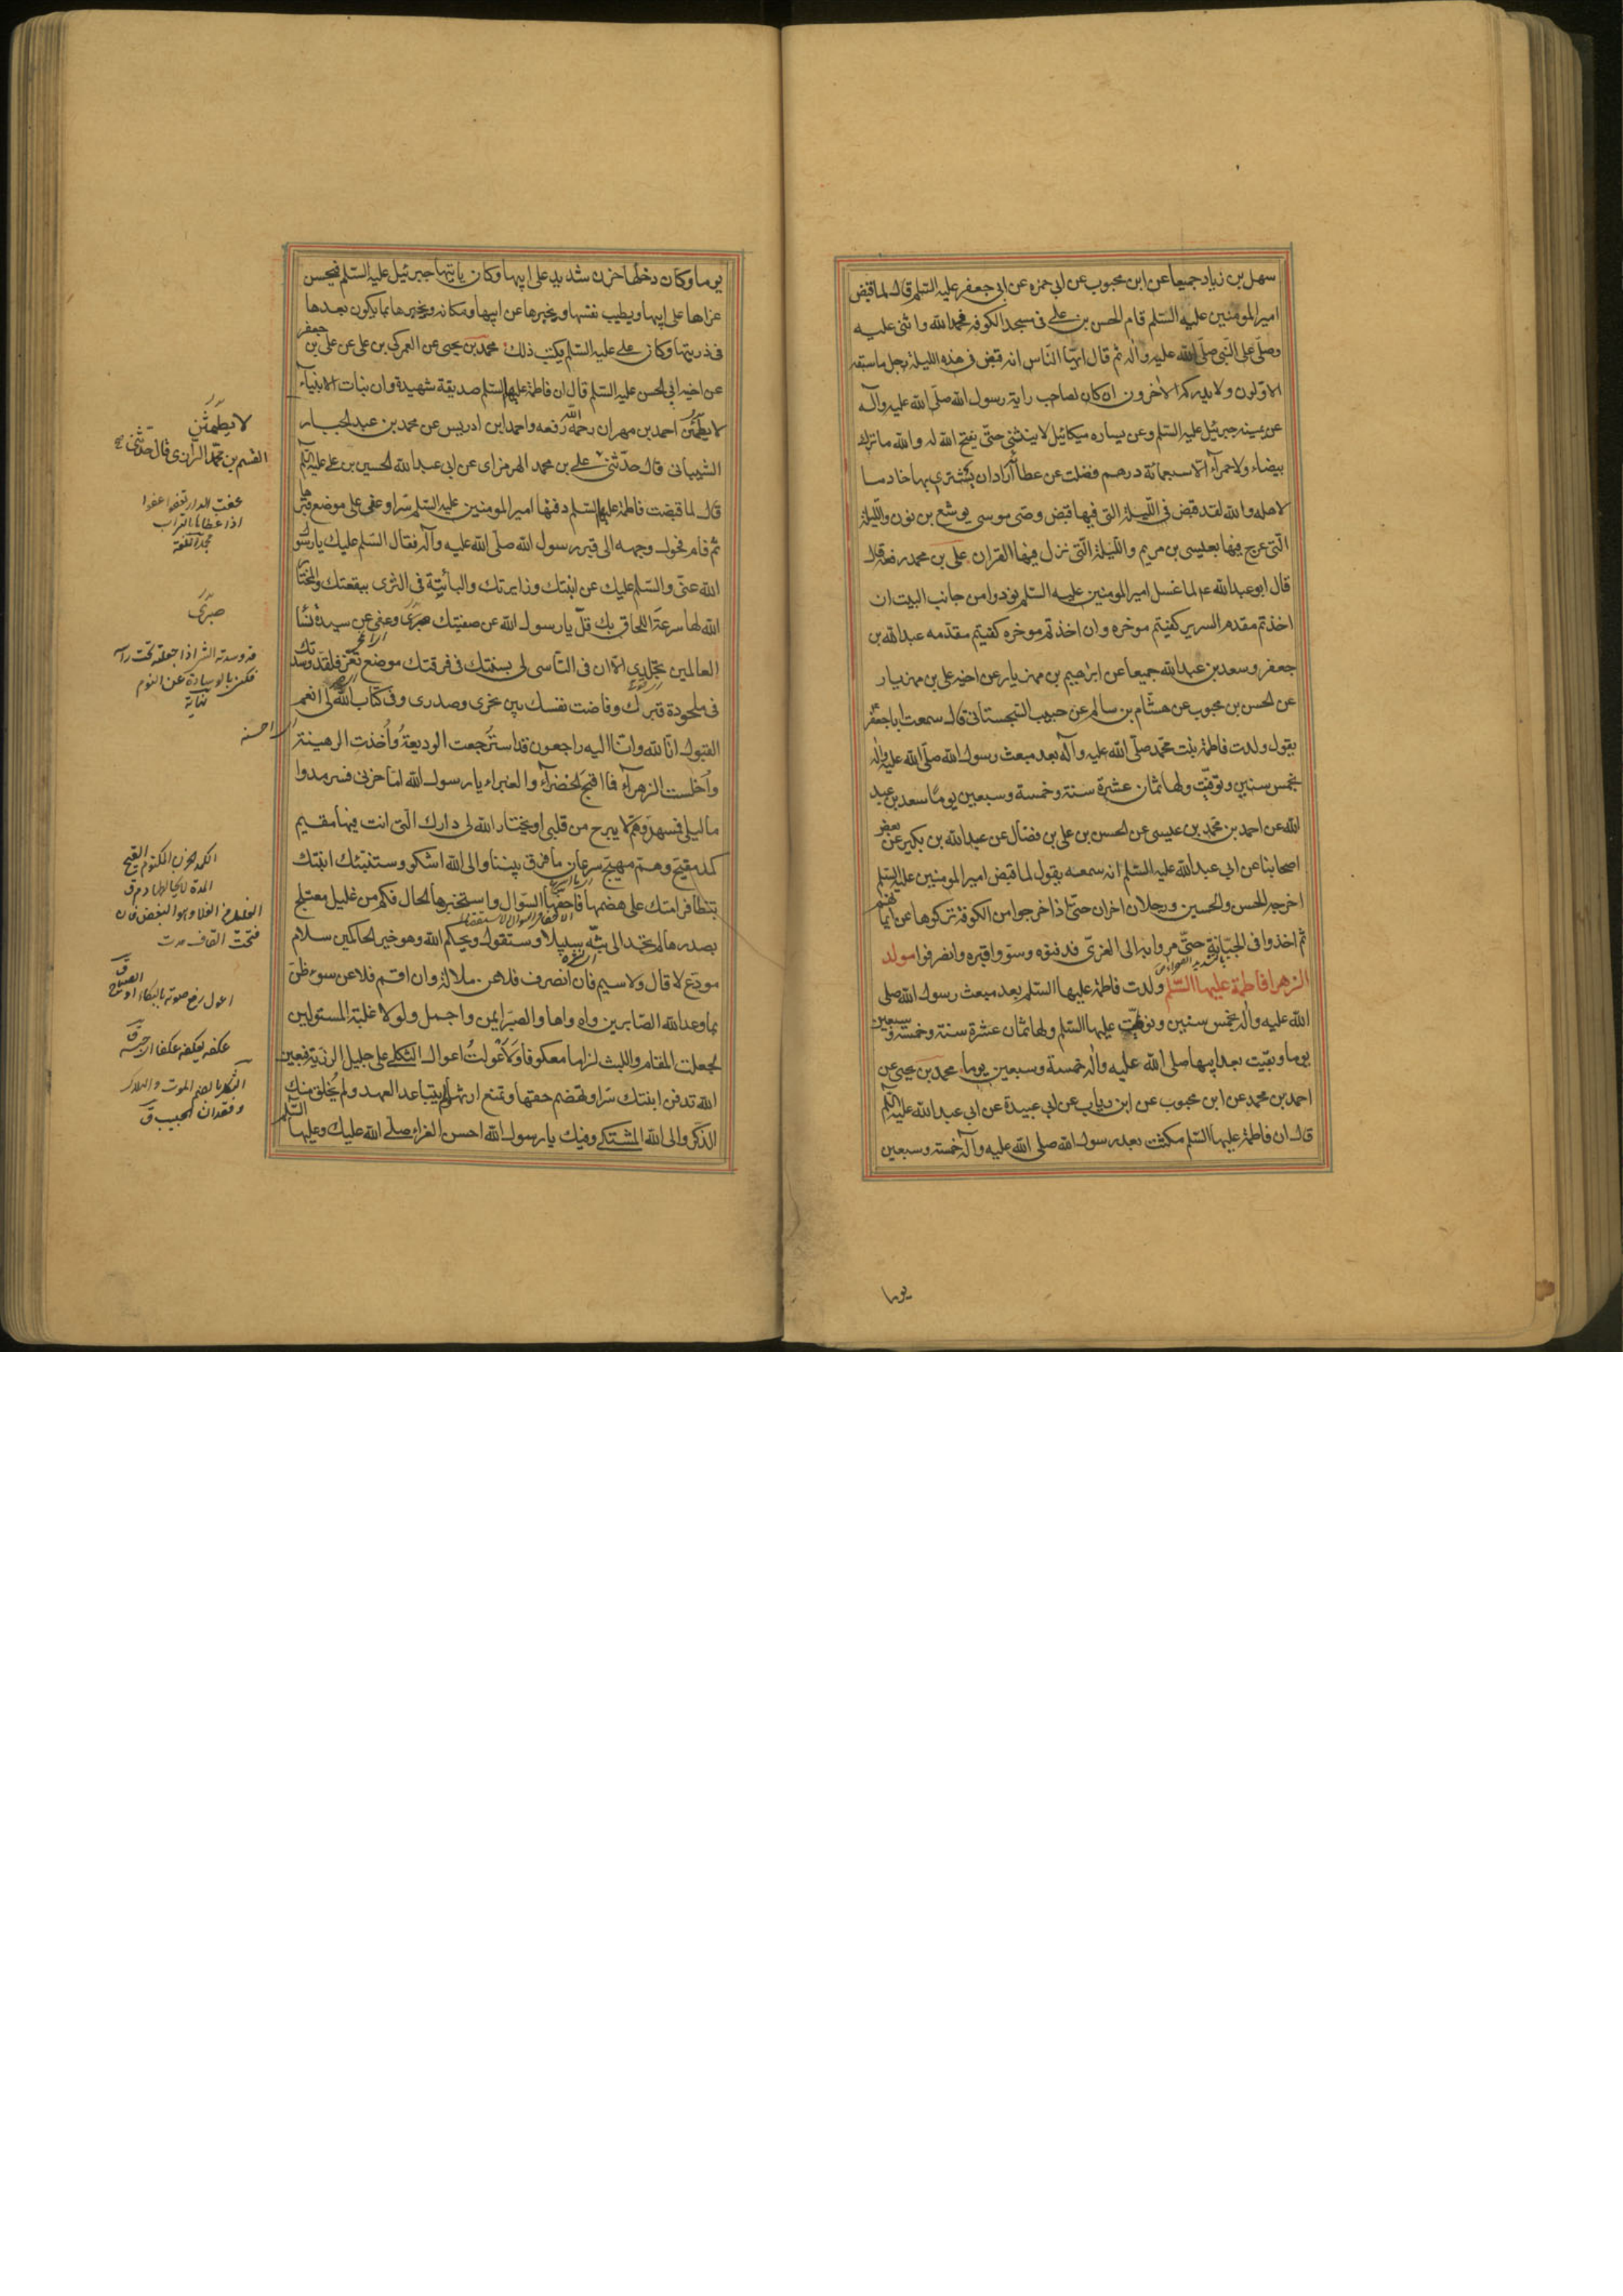 سهل بن زياد جميعا عن ابن محبوب عن ابى حمزه عن ابى جعفر عليه السّلم قال لما قبض
امير المومنين عليه السّلم قام الحسن بن على فى مسجد الكوفه فحمد الله واثنى عليه
وصلّى على النّبى صلّى الله عليه واله ثم قال ايّها النّاس انه قبض فى هذه الليلة رجل ما سبقه
الاوّلون ولا يدركه الاخرون ان كان لصاحب راية رسول الله صلّى الله عليه وآله
عن يمينه جبرئيل عليه السّلم وعن يساره ميكائيل لا ينثنى حتّى يفتح الله له والله ما ترك
بيضاء ولا حمرآء الّا سبعمائة درهم فضلت عن عطآئه اراد ان يشترى بها خادما
لاهله والله لقد قبض فى اللّيلة التى فيها قبض وصى موسى يوشع بن نون واللّيلة
الّتى عرج فيها بعيسى بن مريم واللّيلة الّتى نزل فيها القران على بن محمد رفعه قال
قال ابو عبدالله ع لما غسل امير المومنين عليه السّلم نودوا من جانب البيت ان
اخذتم مقدم السرير كفيتم موخره وان اخذتم موخره كفيتم مقدمه عبدالله بن
جعفر وسعد بن عبدالله جميعا عن ابرهيم بن مهزيار عن اخيه على بن مهزيار
عن الحسن بن محبوب عن هشام بن سالم عن حبيب السّجستانى قال سمعت ابا جعفر ع
يقول ولدت فاطمة بنت محمّد صلّى الله عليه وآله بعد مبعث رسول الله صلّى الله عليه واله
بخمس سنين وتوفيّت ولها ثمان عشرة سنة وخمسة وسبعين يومًا سعد بن عبد
الله عن احمد بن محمّد بن عيسى عن الحسن بن على بن فضّال عن عبدالله بن بكير عن بعض
اصحابنا عن ابى عبدالله عليه السّلم انه سمعه يقول لما قبض امير المومنين عليه السّلم
اخرجه الحسن والحسين ورجلان اخران حتّى اذا خرجوا من الكوفة تركوها عن ايمانهم
ثم اخذوا فى الجبّانة حتّى مروا به الى الغرىّ فدفنوه وسوّوا قبره وانصرفوا مولد
الزهرا فاطمة عليها السّلم ولدت فاطمة عليها السّلم بعد مبعث رسول الله صلى
الله عليه واله بخمس سنين وتوفيّت عليها السّلم ولها ثمان عشرة سنة وخمسة وسبعين
يوما وبقيت بعد ابيها صلى الله عليه واله خمسة وسبعين يوما محمد بن يحيى عن
احمد بن محمد عن ابن محبوب عن ابن رياب عن ابى عبيدة عن ابى عبدالله عليه السّلم
قال ان فاطمة عليها السّلم مكثت بعد رسول الله صلى الله عليه وآله خمسة وسبعين
يوما
يوما وكان دخلها حزن شديد على ابيها وكان ياتيها جبرئيل عليه السّلم فيحسن
عزاها على ابيها ويطيب نفسها ويخبرها عن ابيها ومكانه ويخبرها بما يكون بعدها
فى ذريتها وكان على عليه السّلم يكتب ذلك محمد بن يحيى عن العمركى بن على عن على بن جعفر
عن اخيه ابى الحسن عليه السّلم قال ان فاطمة عليها السّلم صديقة شهيدة وان بنات الانبيآء
لا يطمثن احمد بن مهران رحمه الله رفعه واحمد بن ادريس عن محمد بن عبد الجبار
الشيبانى قال حدّثنى على بن محمد الهرمزاى عن ابى عبدالله الحسين بن على عليه السّلم
قال لما قبضت فاطمة عليها السّلم دفنها امير المومنين عليه السّلم سّرا وعفى على موضع قبرها
ثم قام فحول وجهه الى قبر رسول الله صلّى الله عليه وآله فقال السّلم عليك يا رسول
الله عنّى والسّلم عليك عن ابنتك وزايرتك والبائتة فى الثرى ببقعتك والمختار
الله لها سرعة اللحاق بك قلّ يا رسول الله عن صفيّتك صبرى وعفى عن سيدة نسآء
العالمين تجلدى الّا ان فى التأسى لى بسنتك فى فرقتك موضع تعزّ فلقد وسدتك
فى ملحودة قبرك وفاضت نفسك بين نحرى وصدرى وفى كتاب الله لى انعم
القبول انّا لله وانّا اليه راجعون قد استرجعت الوديعة واخذت الرهينة
واخلست الزهرآء فما اقبح الخضرآء والغبراء يا رسول الله امّا حزنى فسرمد وا
ما ليلى فمسهد وهمّ لا يبرح من قلبى او يختار الله لى دارك الّتى انت فيها مقيم
كمد مقيح وهمّ مهيّج سرعان ما فرق بيننا والى الله اشكو وستنبئك ابنتك
بتظافر امتك على هضمها فاحفها السّوال واستخبرها الحال فكم من غليل معتلج
بصدرها لم تجد الى بثّه سبيلا وستقول ويحكم الله وهو خير الحاكمين سلام
مودع لا قال ولا سيم فان انصرف فلا عن ملالة وان اقم فلا عن سوء ظن
بما وعد الله الصّابرين واه واها والصّبر ايمن واجمل ولو لا غلبة المستولين
لجعلت المقام واللبث لزاما معكوفا ولأعولت اعوال الثكلى على جليل الرزيّة فبعين
الله تدفن ابنتك سّرا وتهضم حقها وتمنع ارثها ولم يتباعد العهد ولم يخلق منك
الذكر والى الله المشتكى وفيك يا رسول الله احسن العزاء صلّى الله عليك وعليها السّلم
لا يطمثن
القسم بن محمّد الرازى قال حدّثنى
عفت الدار تعفوا عفوا
اذا غطاها التراب
مجمل اللغة
صبرى
الكمد الحزن المكتوم القيح
المدة لا يخالطها دم ق
اعول رفع صوته بالبكاء
عكفه يعكفه عكفا
الثكل بالضم الموت والهلاك
وفقدان الحبيب ق